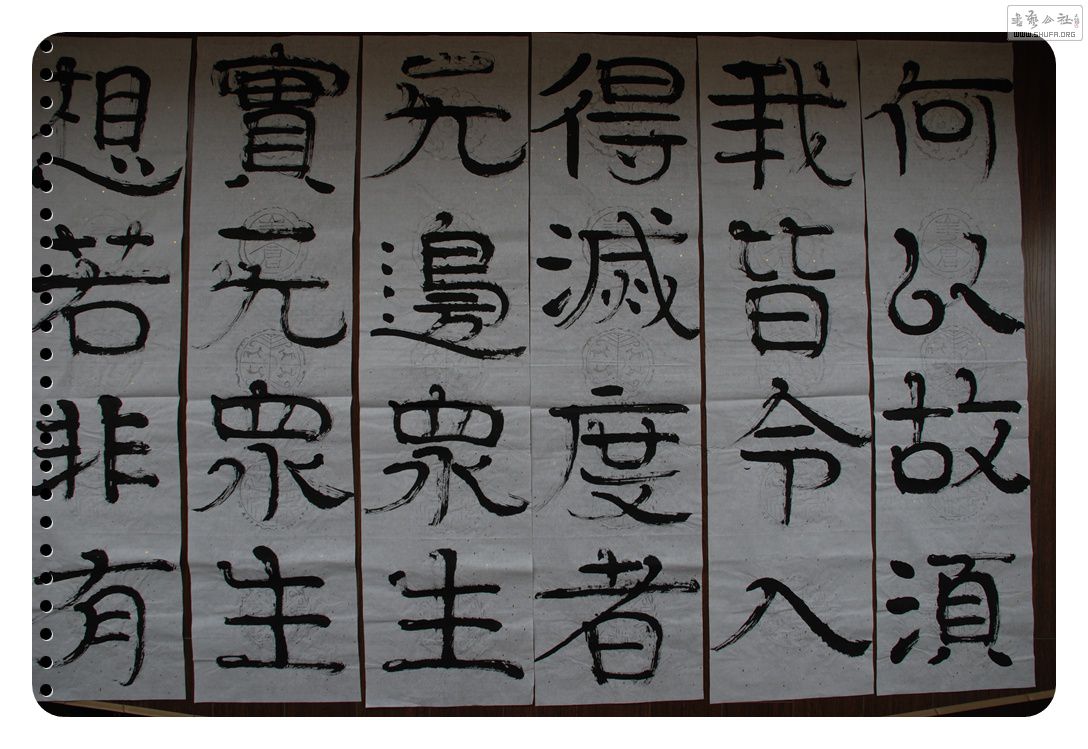 何以故須
我皆令入
得滅度者
无邊眾生
實无眾生
想若非有
书艺公社
WWW.SHUFA.ORG